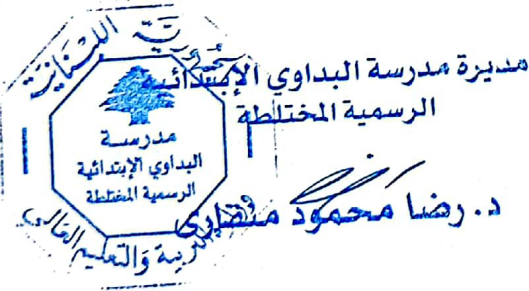 مديرة مدرسة البداوي الإبتدائية
الرسمية المختلطة
د. رضا محمود منقاري
الجمهورية اللبنانية
مدرسة
البداوي الإبتدائية
الرسمية المختلطة
وزارة التربية والتعليم العالي